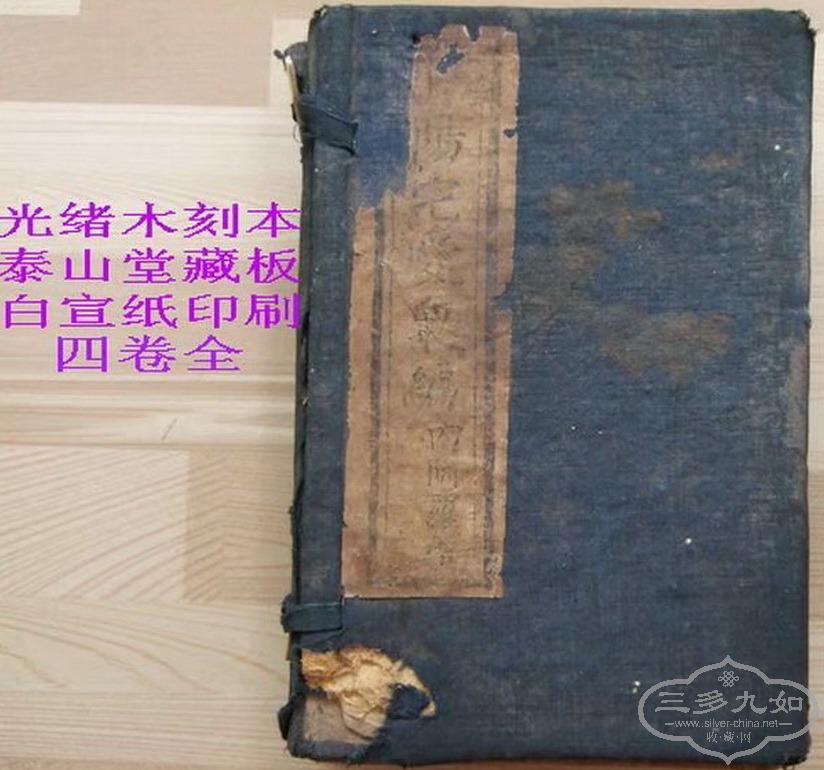 光绪木刻本
泰山堂藏板
白宣纸印刷
四卷全
陽宅愛眾編
三多九如
www.silver-china.net
收·藏·网